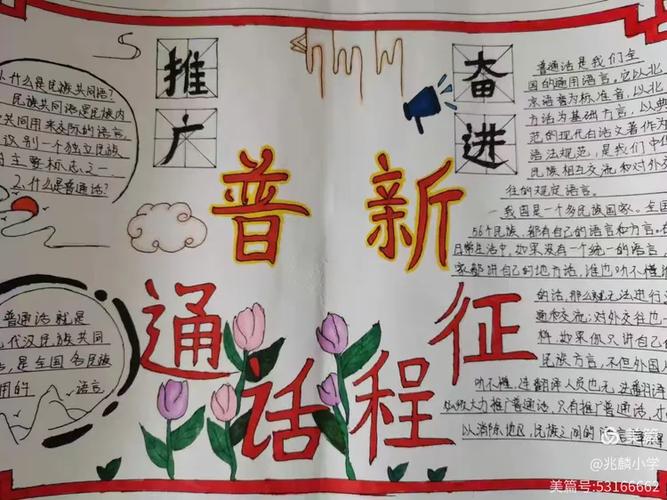 推广
普通话
奋进
新征程
什么是民族共同语?
民族共同语是民族内
共同用来交际的语言
识别一个独立民族
主要标志之一
2.什么是普通话?
普通话就是
代汉民族共同
是全国各民族
用的 语言
普通话是我们全
国的通用语言,它以北
京语音为标准音,以北
方话为基础方言,以
范的现代白话文著作为
语法规范,是我们中
民族相互交流和对外
往的规定语言。
我国是一个多民族国家。全国
56个民族,都有自己的语言和方言。在
日常生活中,如果没有一个统一的语言
家都讲自己的地方话,谁也听不懂
的话,那么就无法进行
通和交流;对外交往也一
样,如果你只讲自己
民族方言,不但外国
听不懂,连翻译人员也无法翻译
大力推广普通话,只有推广普通话,才
以消除地区,民族之间的语言
美篇
@兆麟小学
美篇号:53166662